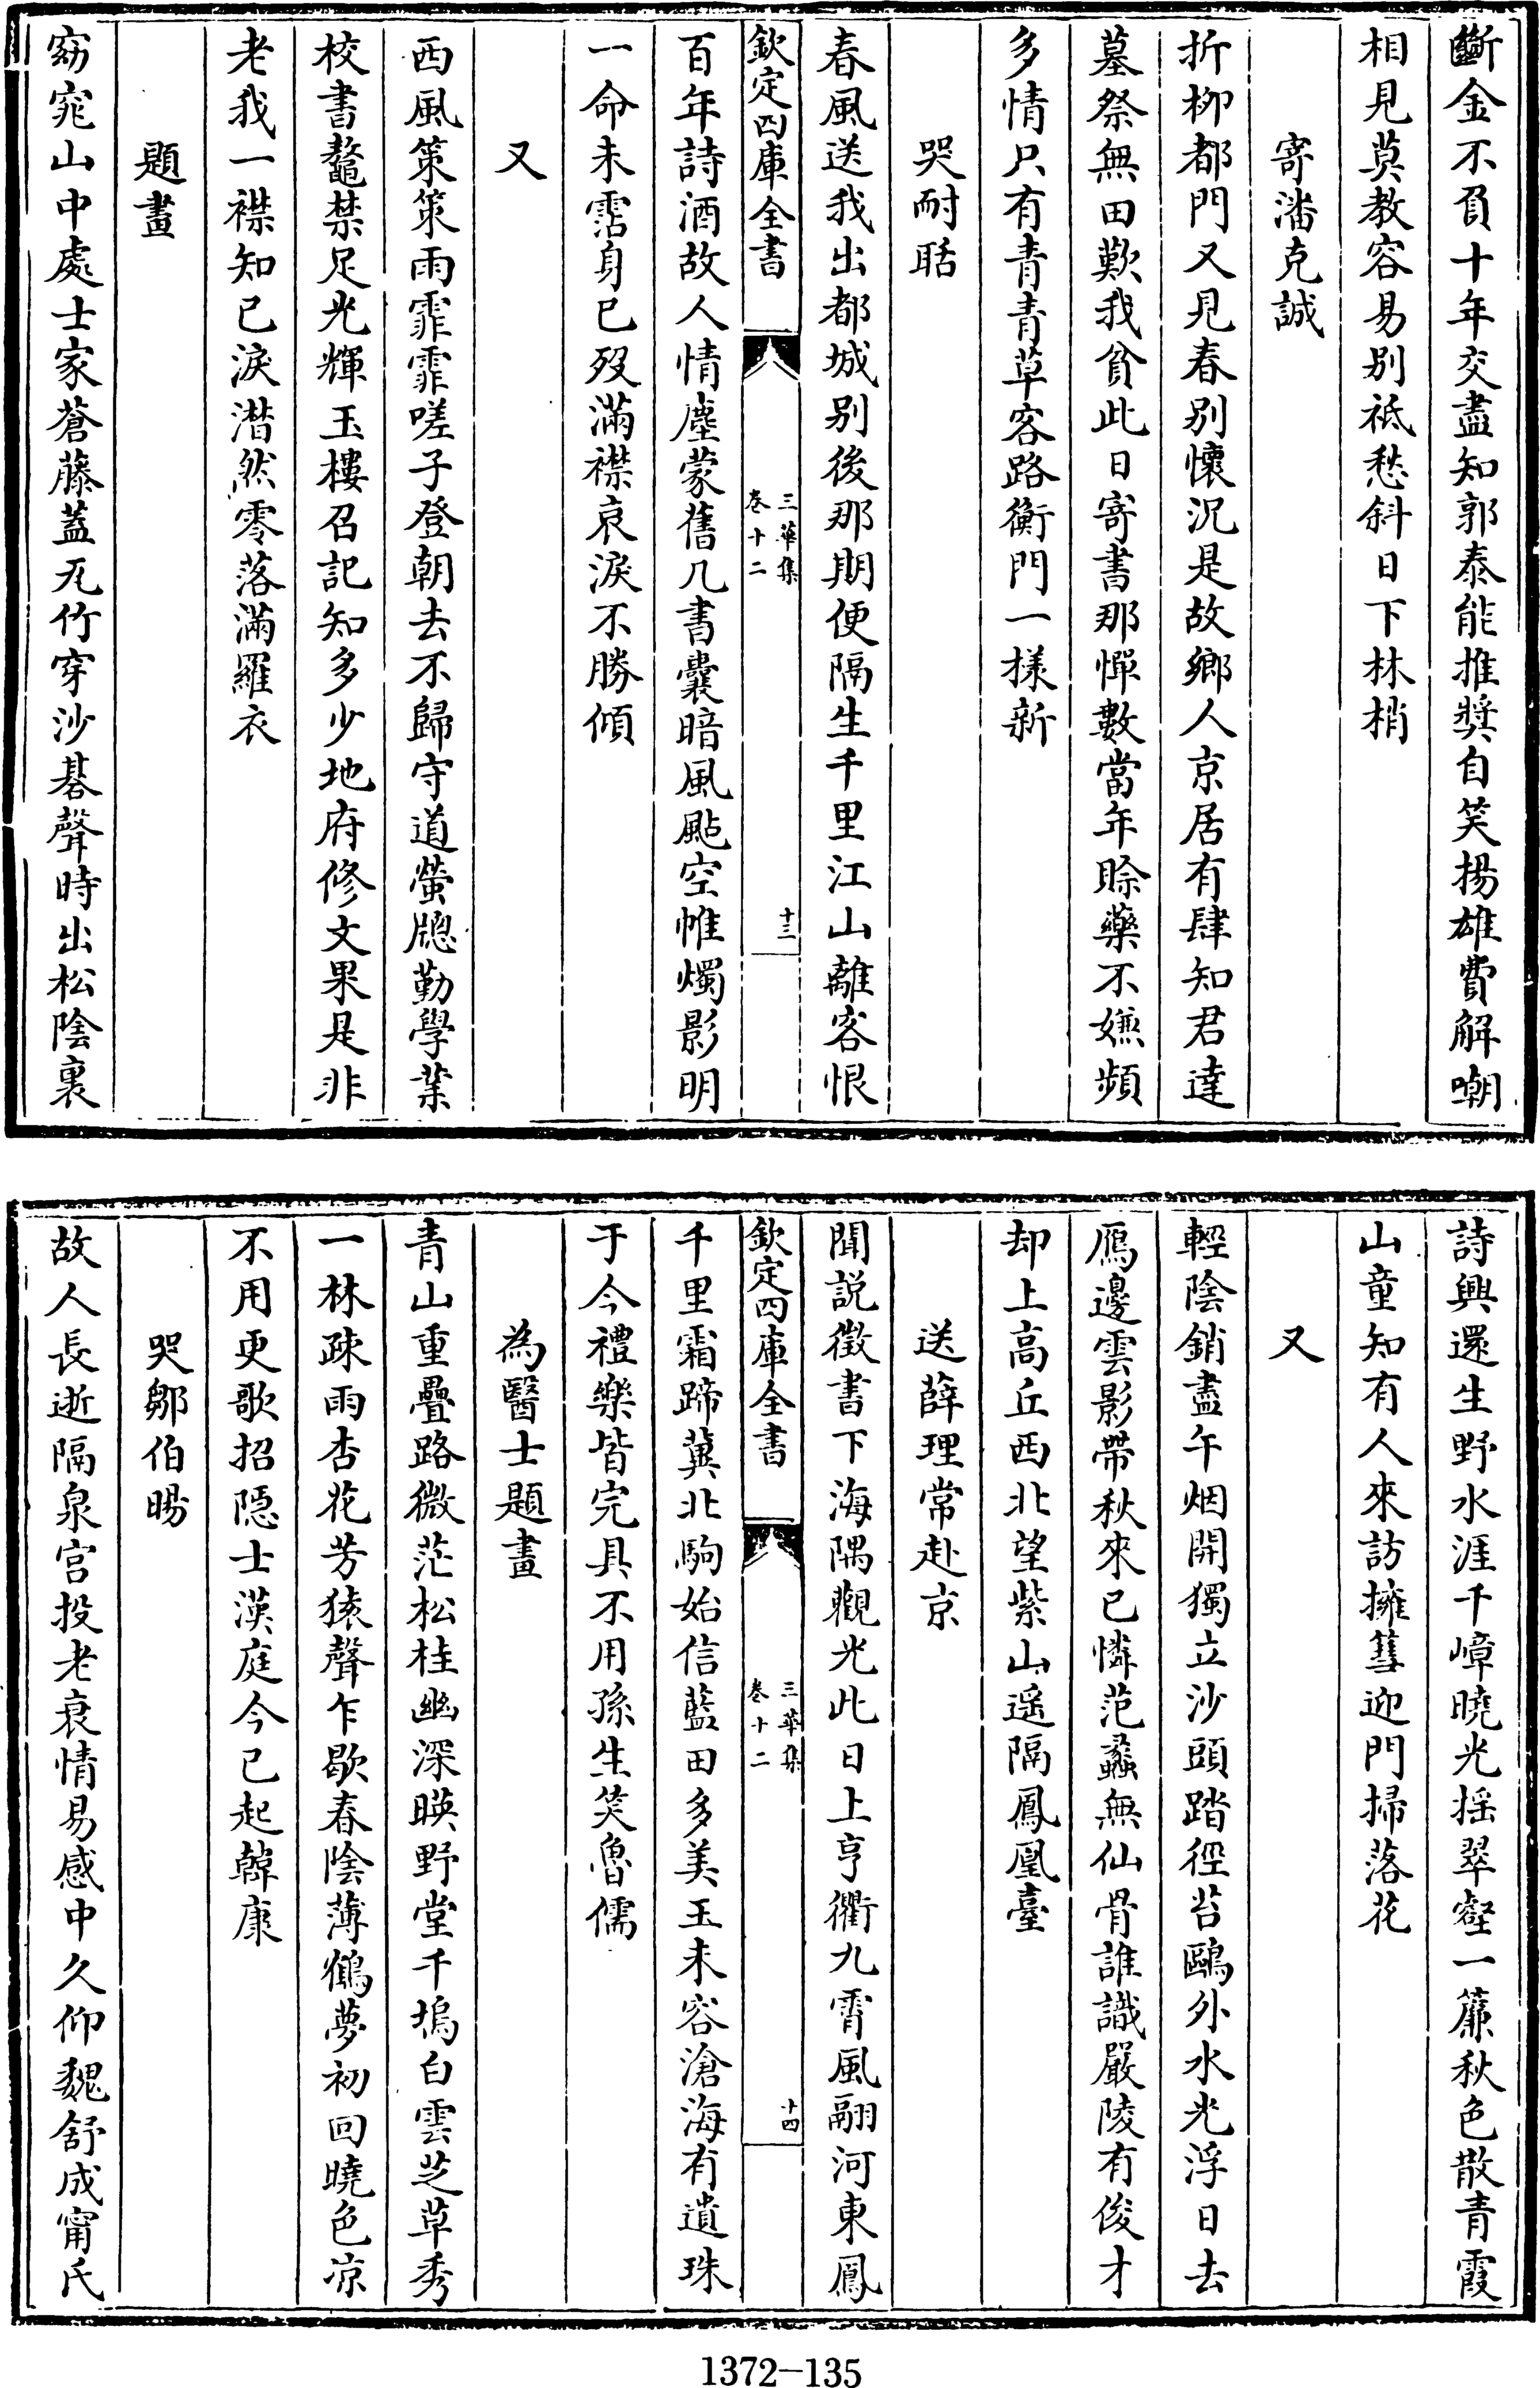 斷金不負十年交盡知郭泰能推奬自笑揚雄費解嘲
相見莫教容易别祗愁斜日下林梢
寄潘克誠
折柳都門又見春别懷况是故鄉人京居有肆知君達
墓祭無田歎我貧此日寄書那憚數當年賒藥不嫌頻
多情只有青青草客路衡門一様新
哭耐聒
春風送我出都城别後那期便隔生千里江山離客恨
欽定四庫全書
三華集
卷十二
十三
百年詩酒故人情塵蒙舊几書囊暗風颭空帷燭影明
一命未霑身已歿滿襟哀淚不勝傾
又
西風策策雨霏霏嗟子登朝去不歸守道螢牕勤學業
校書鼇禁足光輝玉樓召記知多少地府修文果是非
老我一襟知已淚潸然零落滿羅衣
題畫
窈窕山中處士家蒼藤蓋瓦竹穿沙碁聲時出松陰裏
詩興還生野水涯千嶂曉光揺翠壑一簾秋色散青霞
山童知有人來訪擁篲迎門掃落花
又
輕陰銷盡午烟開獨立沙頭踏徑苔鷗外水光浮日去
鴈邊雲影帶秋來已憐范蠡無仙骨誰識嚴陵有俊才
却上高丘西北望紫山遥隔鳳凰臺
送薛理常赴京
聞説徵書下海隅觀光此日上亨衢九霄風翮河東鳳
欽定四庫全書
三華集
卷十二
十四
千里霜蹄冀北駒始信藍田多美玉未容滄海有遺珠
于今禮樂皆完具不用孫生笑魯儒
為醫士題畫
青山重疊路微茫松桂幽深暎野堂千塢白雲芝草秀
一林疎雨杏花芳猿聲乍歇春陰薄鶴夢初回曉色凉
不用更歌招隠士漢庭今已起韓康
哭鄒伯暘
故人長逝隔泉宫投老哀情易感中久仰魏舒成甯氏
1372-135